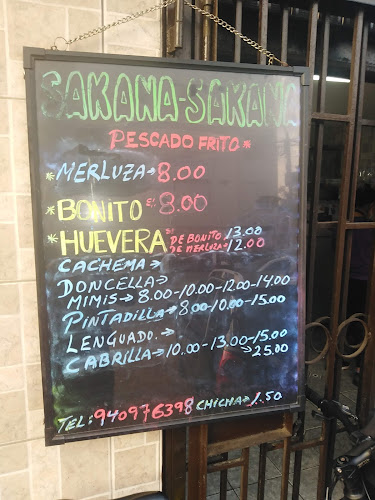 SAKANA-SAKANA
PESCADO FRITO*
*MERLUZA→8.00
*BONITO S/. 8.00
*HUEVERA DE BONITO 13.00
DE MERLUZA→12.00
CACHEMA→
DONCELLA→
MIMIS→8.00-10.00-12.00-14.00
PINTADILLA→8.00-10.00-15.00
LENGUADO.→
CABRILLA→10.00-13.00-15.00
→25.00
TEL: 940976398 CHICHA→1.50